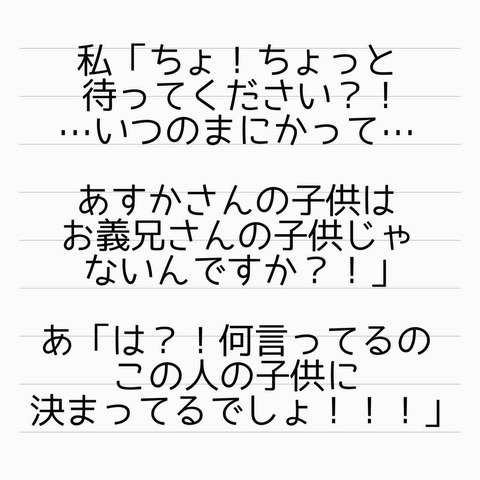 私「ちょ！ちょっと
待ってください？！
…いつのまにかって…
あすかさんの子供は
お義兄さんの子供じゃ
ないんですか？！」
あ「は？！何言ってるの
この人の子供に
決まってるでしょ！！！」